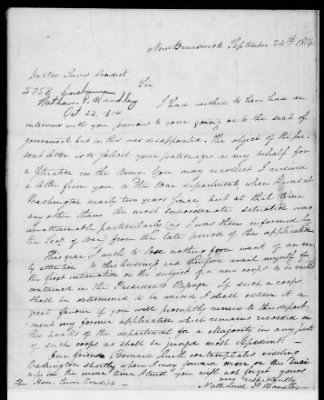 New Brunswick September 24th 1814
Doctor Lewis Condict
Sir
Nathan. F. Handley
Oct. 22. 1814
I had wished to have had an
interview with you previous to your going on to the seat of
government but in this was disappointed. The object of the pre-
sent letter is to solicit your patronage in my behalf for
a situation in the Army. You may recollect I received
a letter from you to the War department when I was at
Washington nearly two years since, but at that time
any other than the most subordinate situation was
unattainable particularly (as I was then informed by
the Secy of War) from the late period of the application
This year I wish to lose nothing from want of an ear-
ly attention to the business and therefore avail myself of
the first intimation on the subject of a new corps to be
contained in the Presidents Message. If such a corps
shall be determined to be raised I shall esteem it a
great favour if you will promptly renew to the depart-
ment my former application which remains recorded in
the books of the department for a Majority in any part
of such corps as shall be judged most expedient.
Our friend Smith contemplates visiting
Washington shortly when I may forward more on the
in the mean time I trust you will not forget yours
very respectfully
The Hon. Lewis Condict